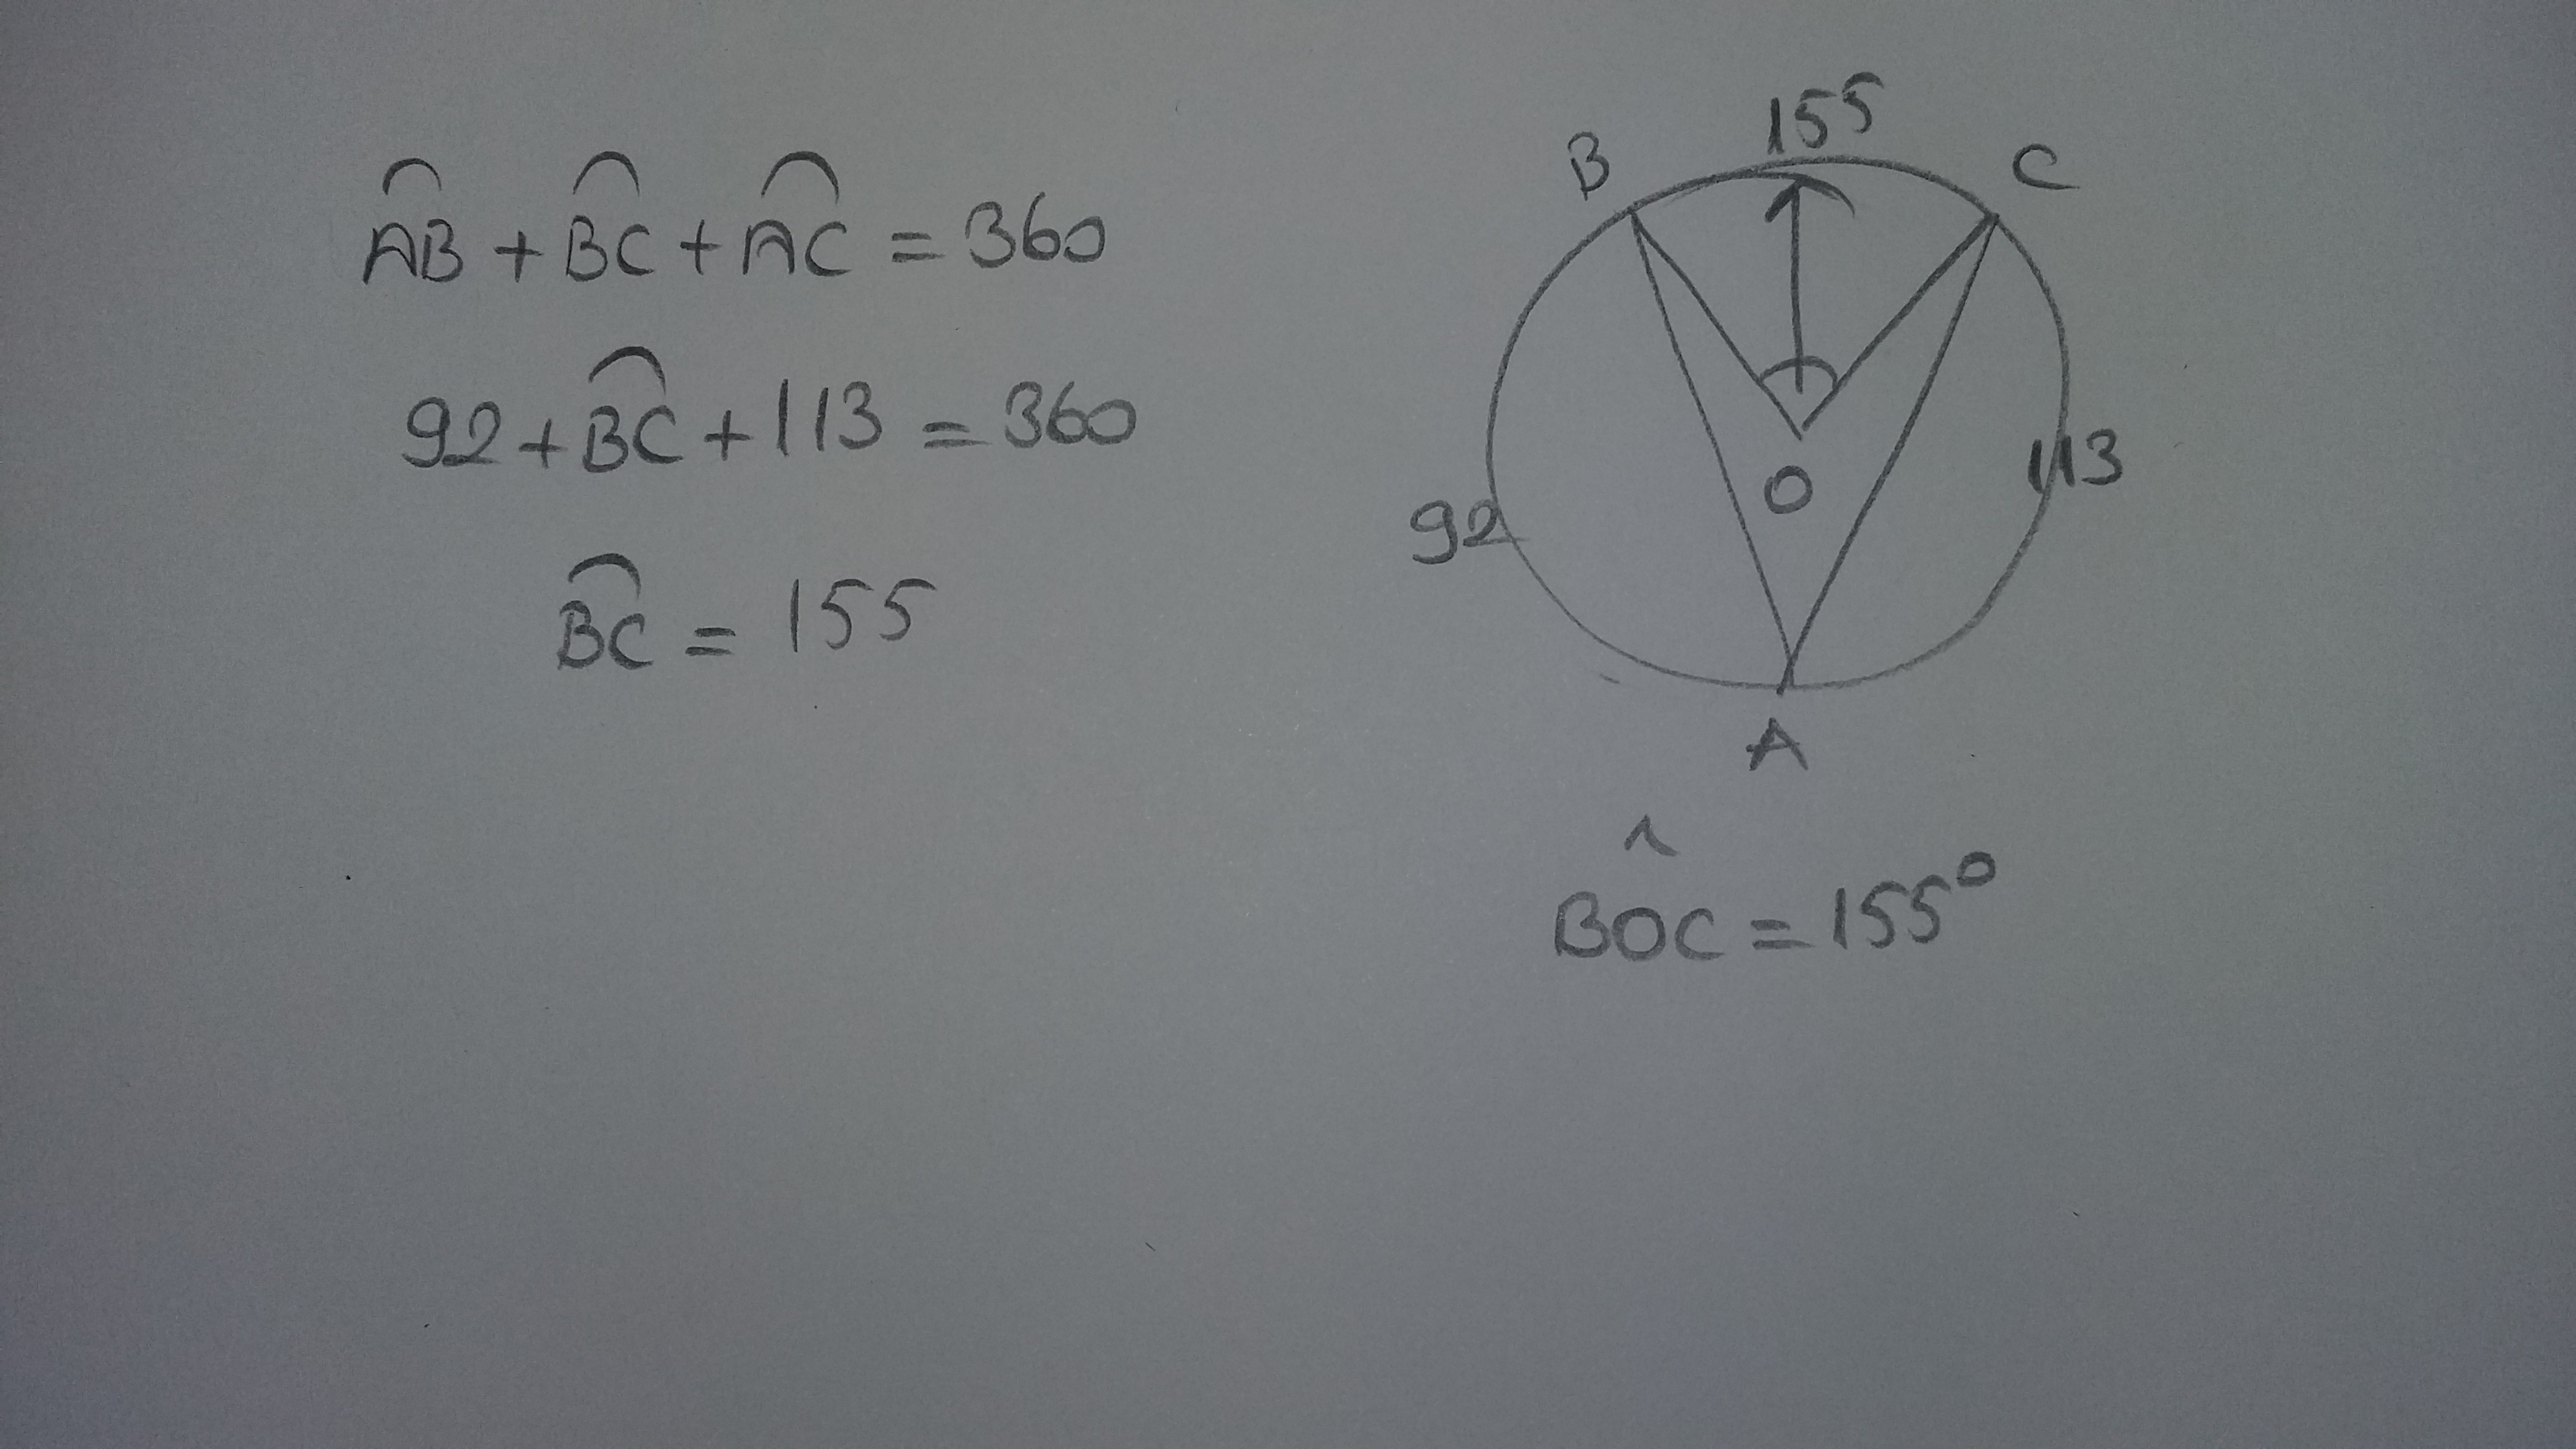 AB + BC + AC = 360
92 + BC + 113 = 360
BC = 155
155
B
C
92
113
O
A
BOC = 155°